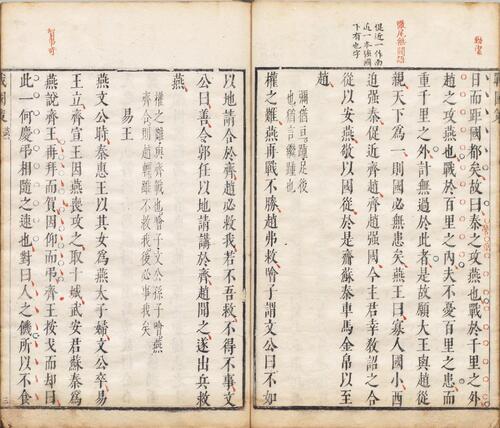 促近一作南
近一本強國
下有也字
日而距國都矣故曰秦之攻燕也戰於千里之外
趙之攻燕也戰於百里之內夫不憂百里之患而
重千里之外計無過於此者是故願大王與趙從
親天下爲一則國必無患矣燕王曰寡人國小西
迫強秦促近齊趙齊趙強國今主君幸敎詔之合
從以安燕敬以國從於是齎蘇秦車馬金帛以至
趙
足後
也猶言繼難也
權之難燕再戰不勝趙弗救噲子謂文公曰不如
以地請合於齊趙必救我若不吾救不得不事文
公曰善令郭任以地請講於齊趙聞之遂出兵救
燕
權之難與齊戰也噲子文公孫子噲燕
齊合則趙輕雖不救我後必事我矣
易王
燕文公時秦惠王以其女爲燕太子婦文公卒易
王立齊宣王因燕喪攻之取十城武安君蘇秦爲
燕說齊王再拜而賀因仰而弔齊王按戈而却曰
此一何慶弔相隨之速也對曰人之饑所以不食